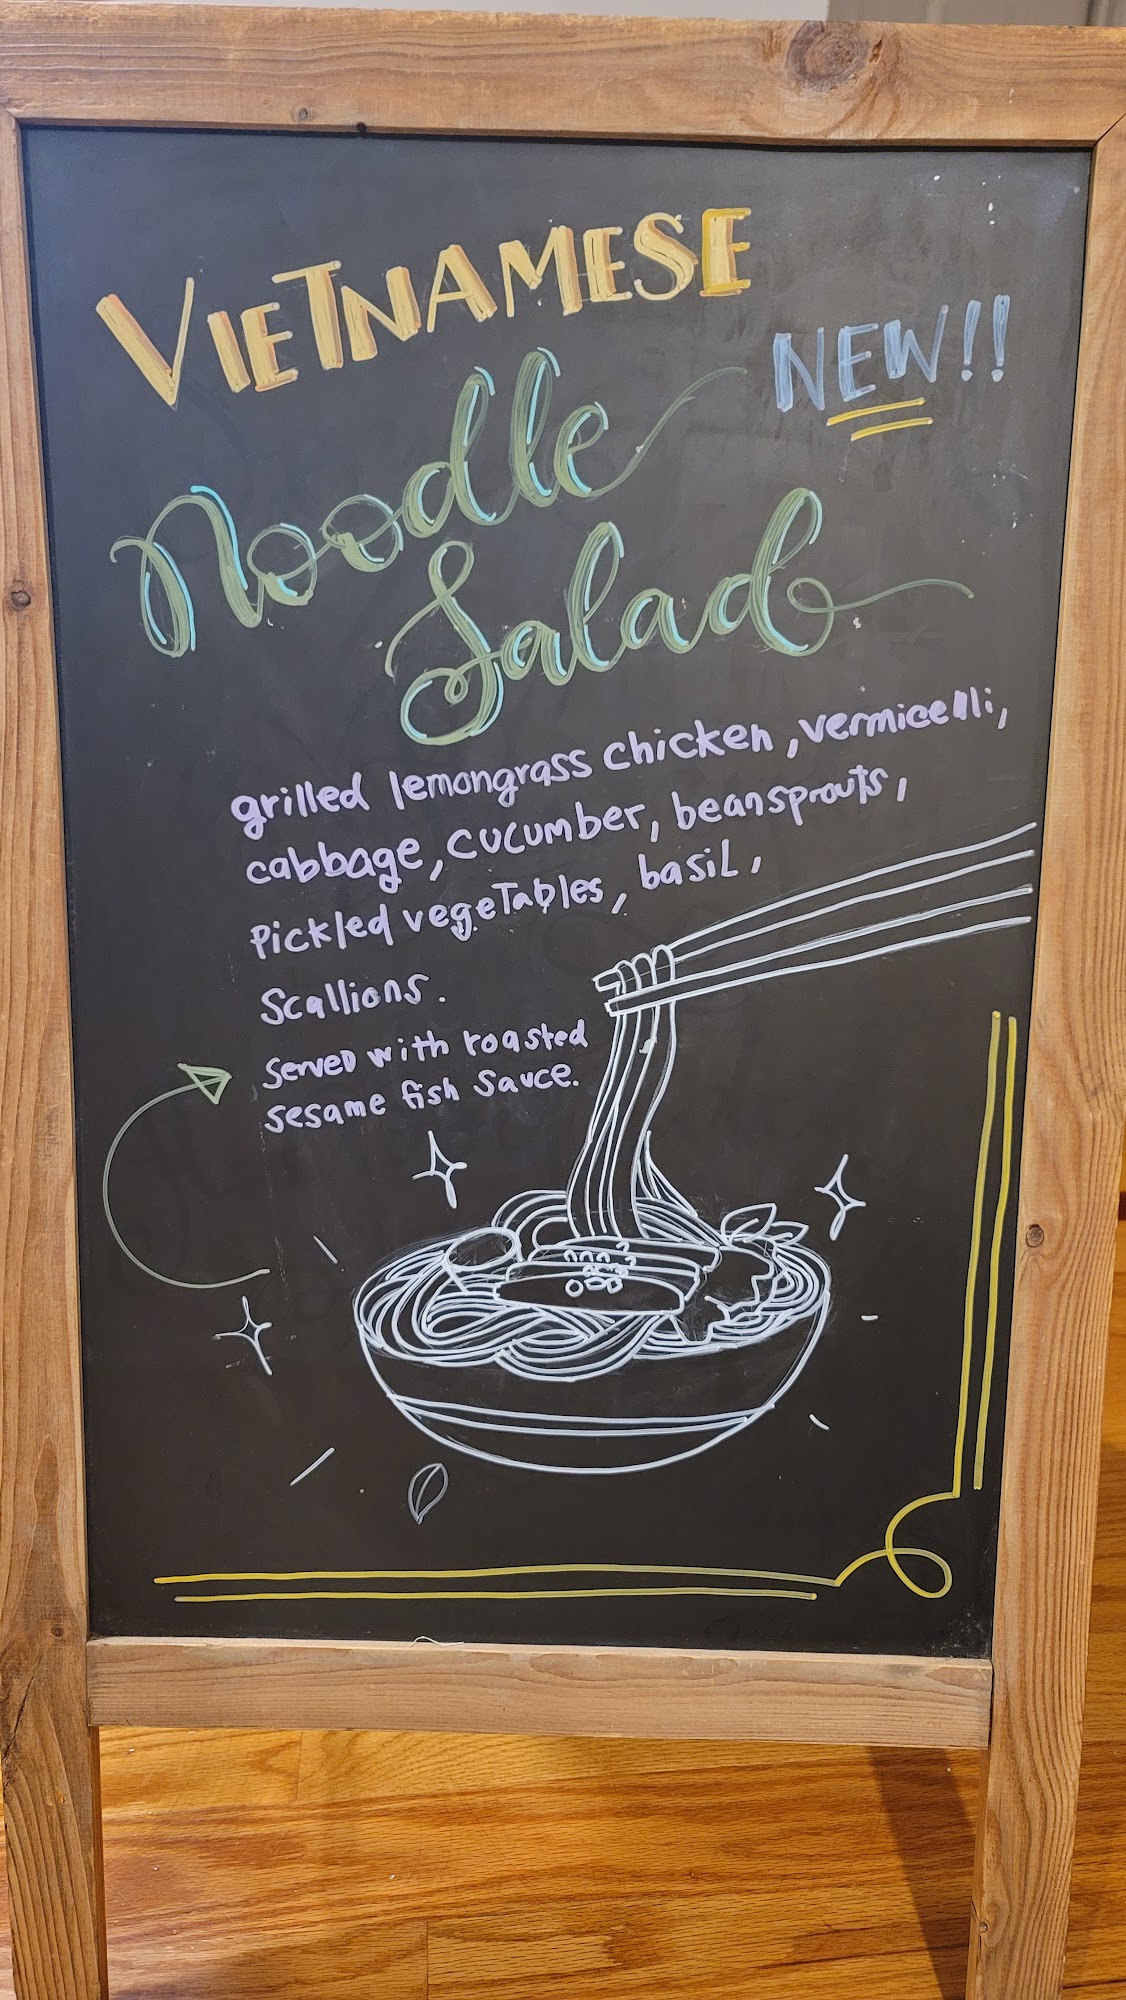 VIETNAMESE
NEW!!
Noodle
Salad
grilled lemongrass chicken, vermicelli,
cabbage, cucumber, beansprouts,
Pickled vegeTables, basil,
Scallions.
Served with roasted
sesame fish sauce.